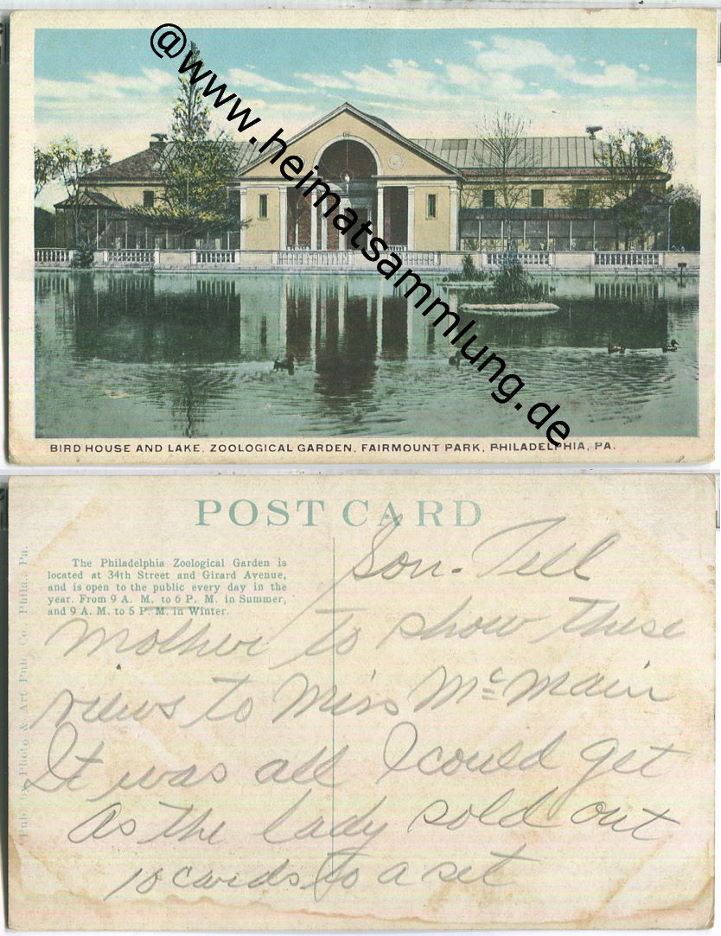 @www.heimatsammlung.de
BIRD HOUSE AND LAKE, ZOOLOGICAL GARDEN, FAIRMOUNT PARK, PHILADELPHIA, PA.
POST CARD
The Philadelphia Zoological Garden is
located at 34th Street and Girard Avenue,
and is open to the public every day in the
year. From 9 A. M. to 6 P. M. in Summer,
and 9 A. M. to 5 P. M. in Winter.
Pub. by Photo & Art Pub. Co. Phila., Pa.
Son. Tell
mother to show these
views to Miss McMain
It was all I could get
As the lady sold out
10 cards to a set